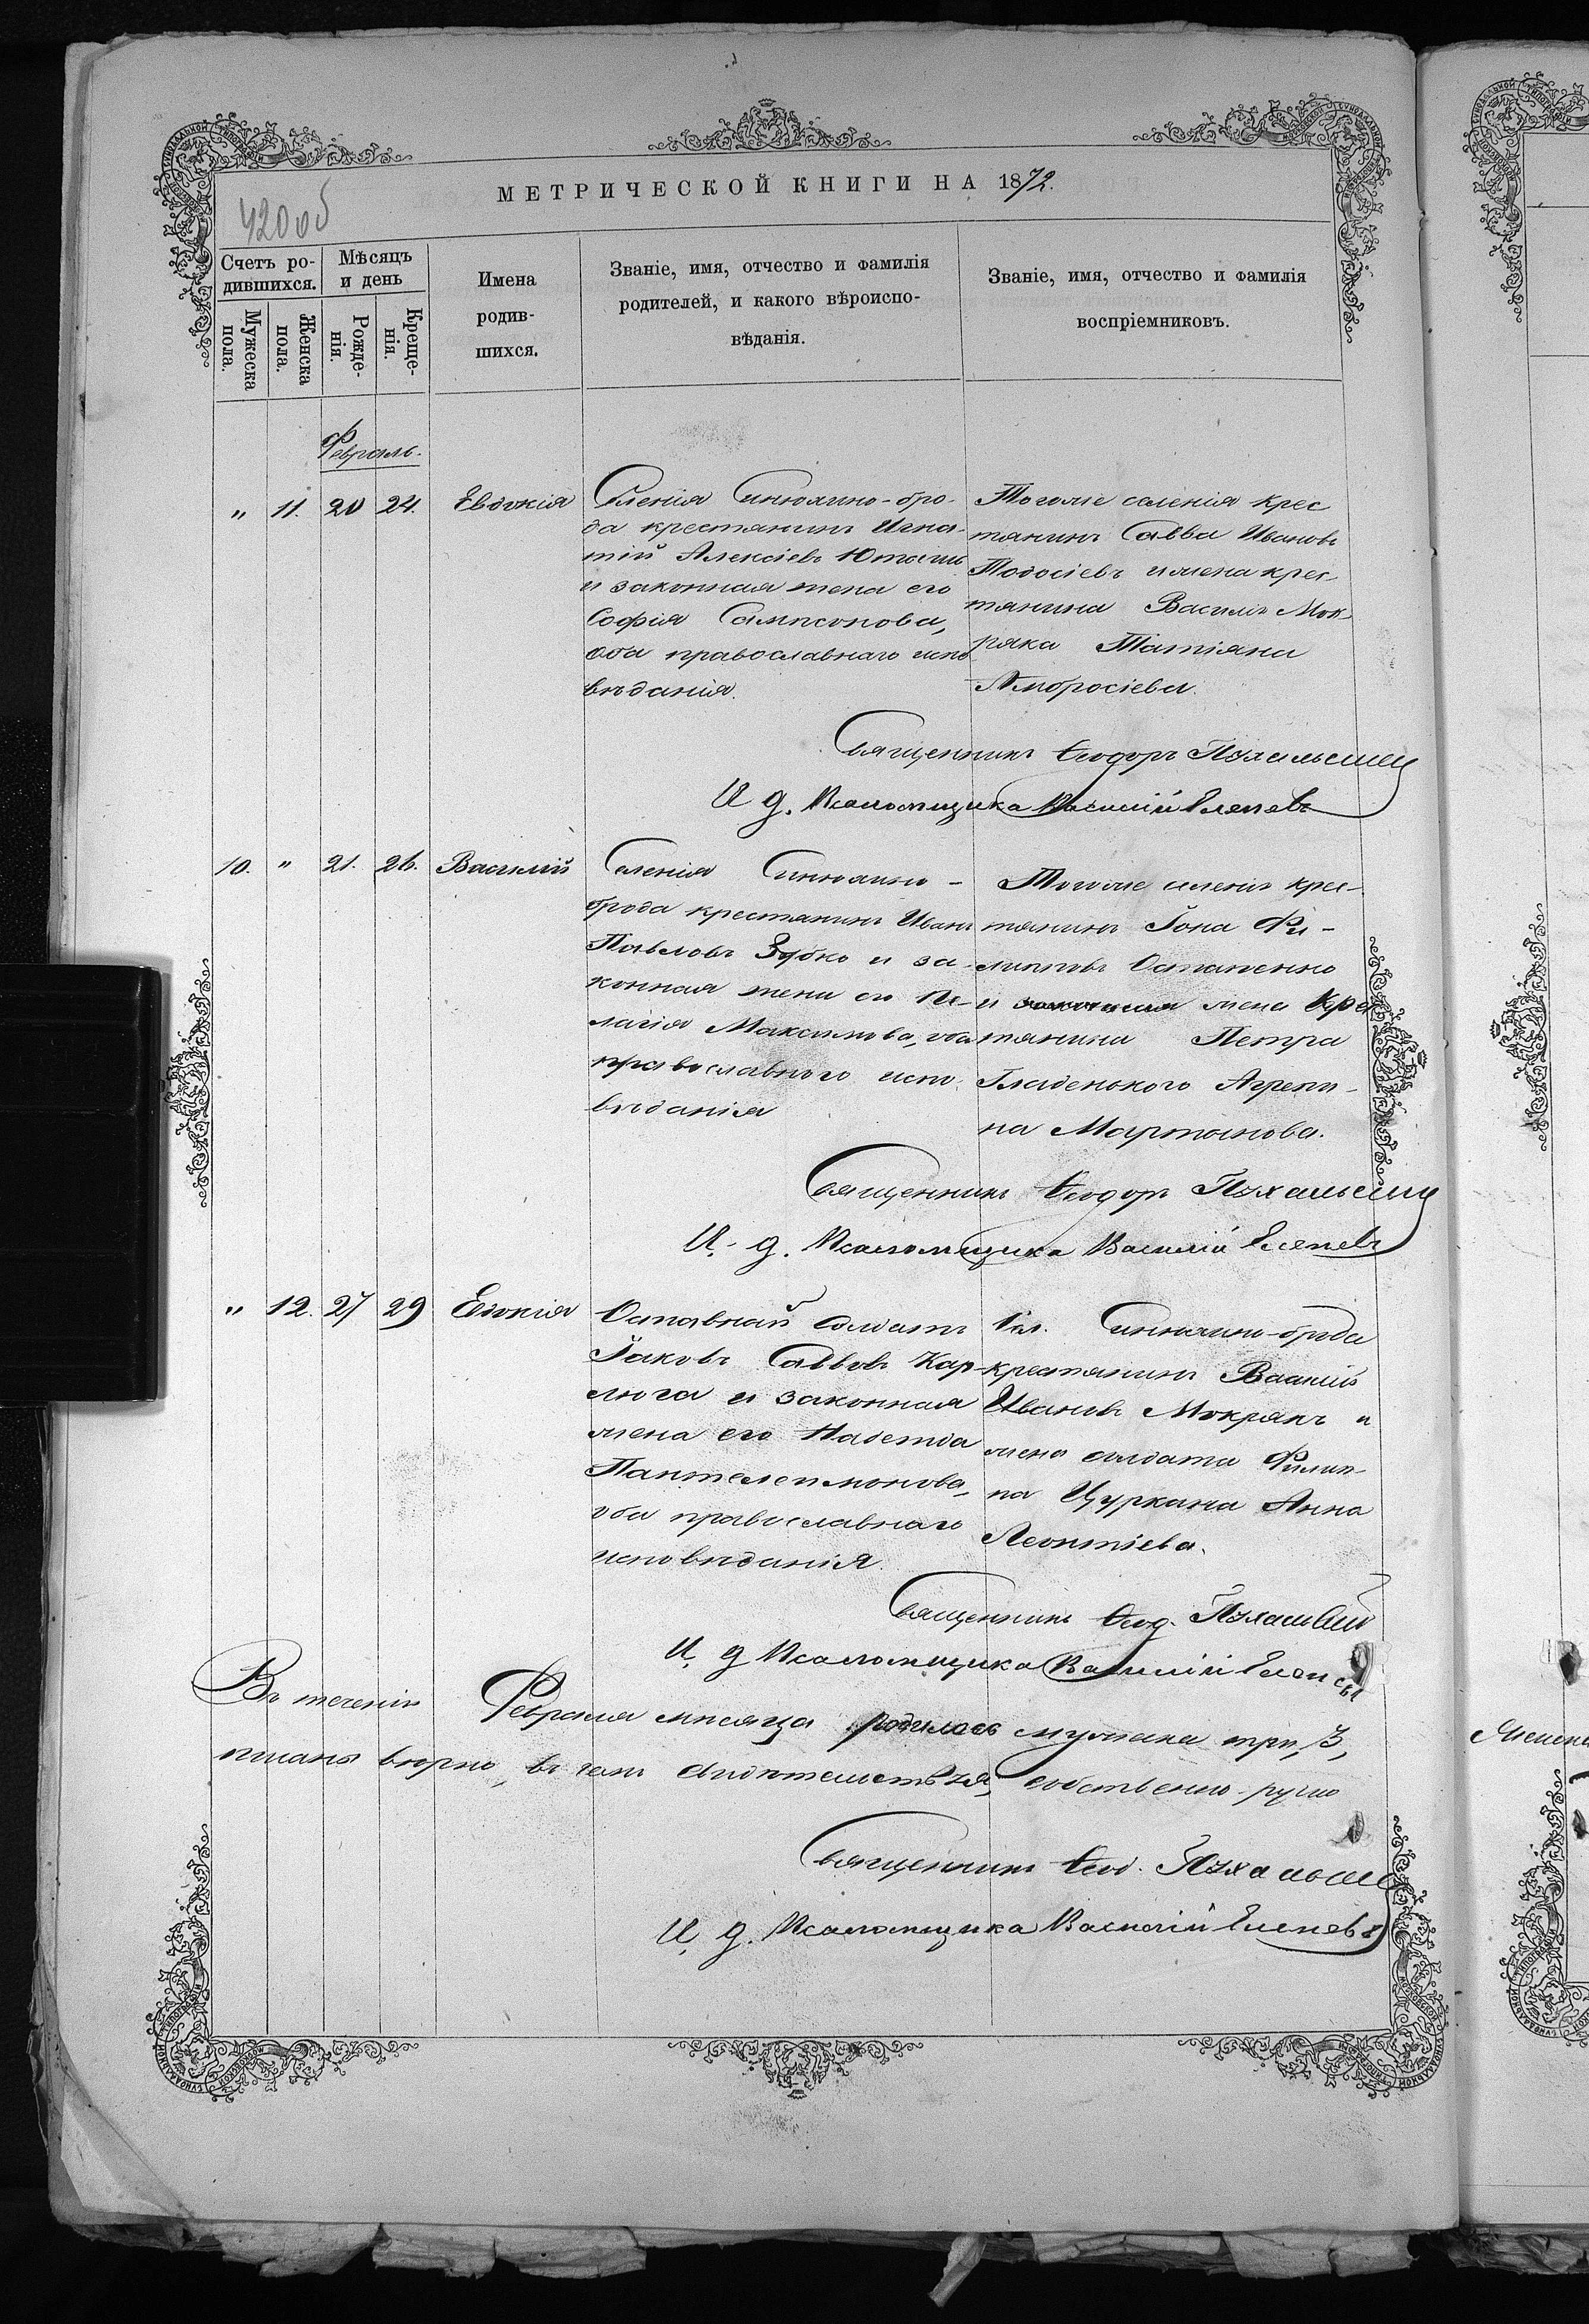 МЕТРИЧЕСКОЙ КНИГИ НА 1872.
420 об
Счетъ ро-
дившихся.
Мѣсяцъ
и день
Мужеска
пола.
Женска
пола.
Рожде-
нія.
Креще-
нія.
Имена
родив-
шихся.
Званіе, имя, отчество и фамилія
родителей, и какого вѣроиспо-
вѣданія.
Званіе, имя, отчество и фамилія
воспріемниковъ.
Февраль.
" 11. 20 24. Евдокія
Селенія Синюхино-бро-
да крестянинъ Игна-
тій Алексіевъ
и законная жена его
Софія Сампсонова,
оба православнаго испо
вѣданія.
Тогоже селенія крес
тянинъ Савва Ивановъ
Тодосіевъ и жена крес-
тянина Василія Мок-
ряка Татіяна
Амбросіева.
Священникъ Ѳеодоръ Пухальскій
И д. Псаломщика Василій
10. " 21. 26. Василій
Селенія Синюхино-
брода крестянинъ Иванъ
Павловъ Зубко и за-
конная жена его Пе-
лагія Максимова, оба
православного испо
вѣданія
Тогоже селенія крес-
тянинъ Іона Фи-
липповъ Остапенко
и жена кре
тянина Петра
Гладенького Агрепи-
на Мартинова.
Священникъ Ѳеодоръ Пухальскій
И. д. Псаломщика Василій
" 12. 27 29 Евдокія
Отставный солдатъ
Іаковъ Саввовъ Кар-
люга и законная
жена его Надежда
Пантелеимонова,
оба православнаго
исповѣданія.
Сел. Синюхино-брода
крестянинъ Василій
Ивановъ Мокрякъ и
жена солдата Филип-
па Цуркана Анна
Леонтіева.
Священникъ Ѳеод. Пухальскій
И. д Псаломщика Василій
Въ теченіи Февраля мѣсяца родилось мужска три, 3,
писано вѣрно, въ чемъ собственно-ручно
Священникъ Ѳеод. Пухальскій
И. д. Псаломщика Василій